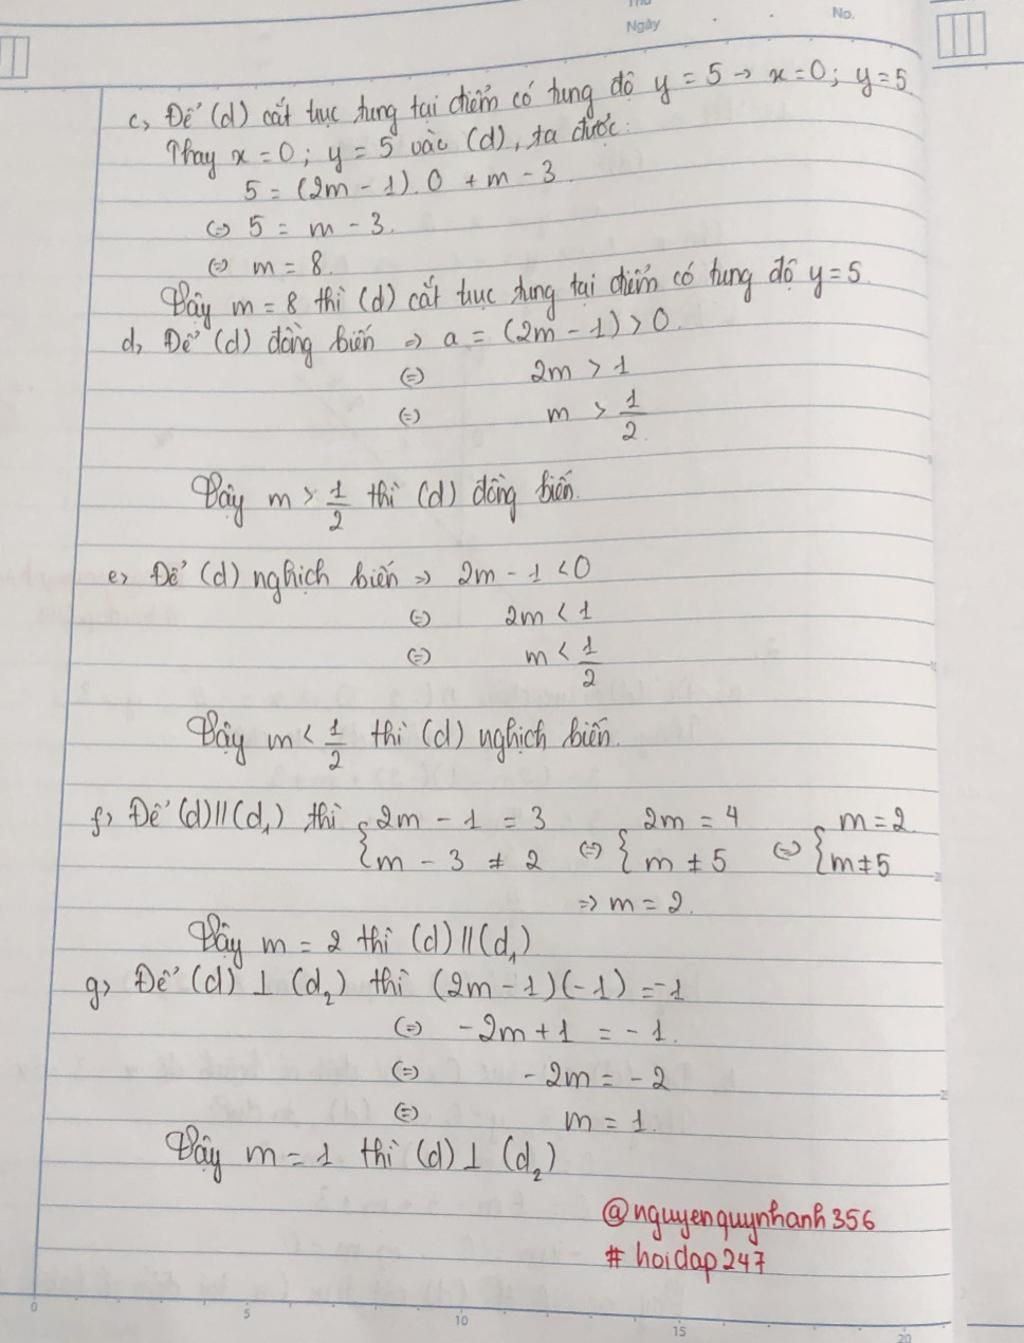 Thứ
Ngày
No.
c, Để (d) cắt trục tung tại điểm có tung độ y = 5 → x = 0 ; y = 5.
Thay x = 0 ; y = 5 vào (d), ta được:
5 = (2m - 1). 0 + m - 3.
(=) 5 = m - 3.
(=) m = 8.
Vậy m = 8 thì (d) cắt trục tung tại điểm có tung độ y = 5.
d, Để (d) đồng biến => a = (2m - 1) > 0.
(=) 2m > 1
(=) m > 1/2.
Vậy m > 1/2 thì (d) đồng biến.
e, Để (d) nghịch biến => 2m - 1 < 0
(=) 2m < 1
(=) m < 1/2
Vậy m < 1/2 thì (d) nghịch biến.
f, Để (d) // (d₁) thì { 2m - 1 = 3 (=) { 2m = 4 (=) { m = 2.
m - 3 ≠ 2 m ≠ 5 m ≠ 5
=> m = 2.
Vậy m = 2 thì (d) // (d₁)
g, Để (d) ⊥ (d₂) thì (2m - 1)(-1) = -1
(=) -2m + 1 = - 1.
(=) - 2m = - 2
(=) m = 1.
Vậy m = 1 thì (d) ⊥ (d₂)
@nguyenquynhanh356
# hoidap247
0 5 10 15 20